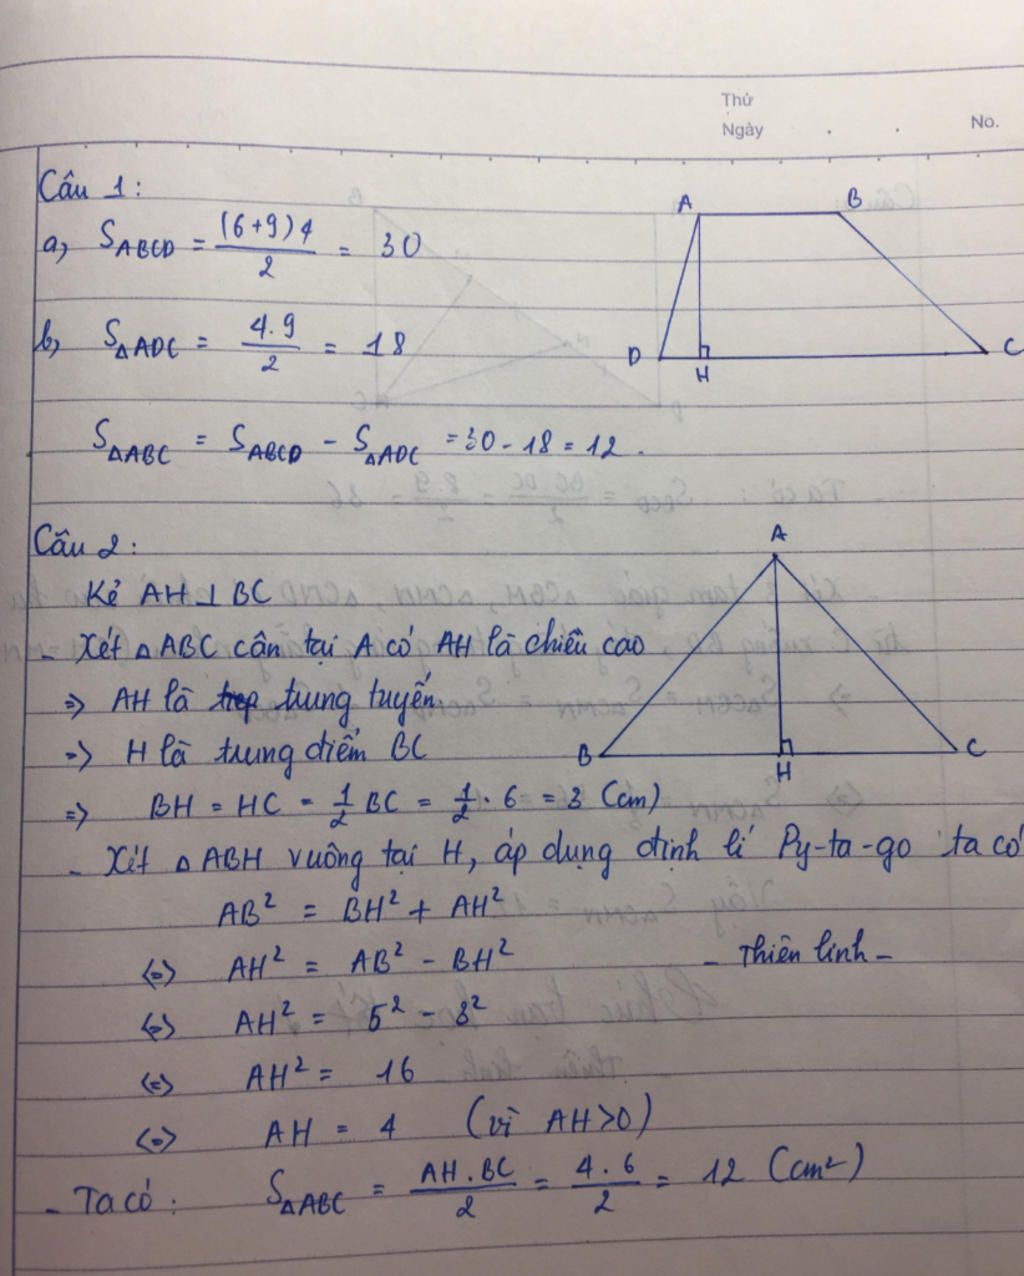 Thứ
Ngày . . No.
Câu 1:
a, S_ABCD = (6+9)4/2 = 30
b, S_△ADC = 4.9/2 = 18
S_△ABC = S_ABCD - S_△ADC = 30 - 18 = 12.
A B
D H C
Câu 2:
Kẻ AH⊥BC
- Xét △ABC cân tại A có AH là chiều cao
=> AH là trung tuyến
=> H là trung điểm BC
=> BH = HC = 1/2 BC = 1/2 . 6 = 3 (cm)
A
B H C
- Xét △ABH vuông tại H, áp dụng định lí Py-ta-go ta có
AB² = BH² + AH²
<=> AH² = AB² - BH²
- Thiên linh -
<=> AH² = 5² - 3²
<=> AH² = 16
<=> AH = 4 (vì AH>0)
- Ta có: S_△ABC = AH.BC/2 = 4.6/2 = 12 (cm²)